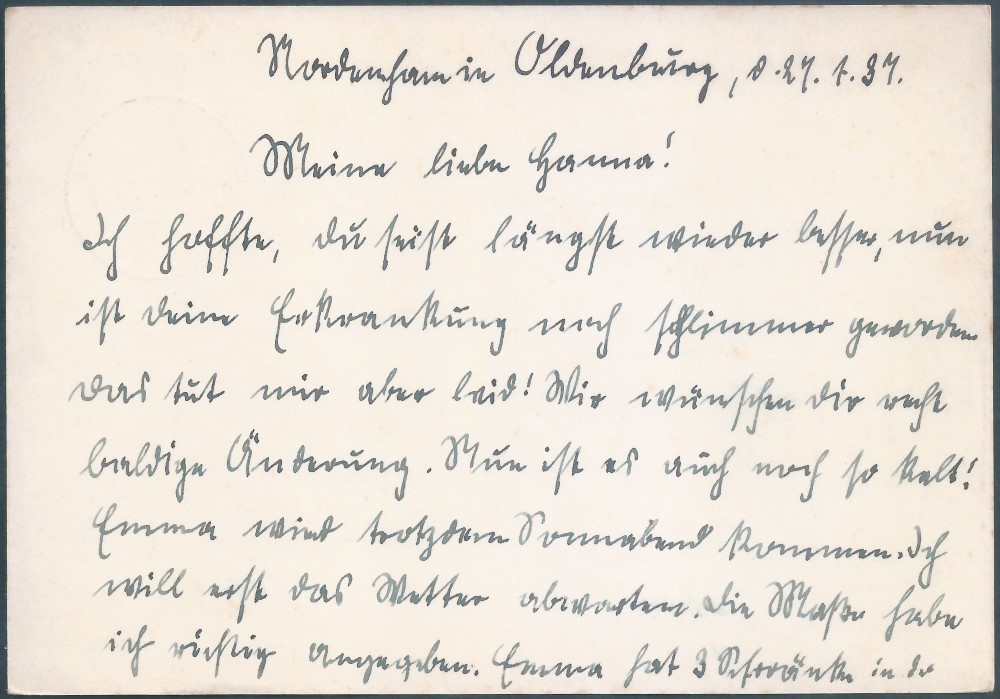 Nordenham in Oldenburg, d. 27. 1. 37.
Meine liebe Hanna!
Ich hoffte, du seist längst wieder besser, nun
ist deine Erkrankung noch schlimmer geworden
das tut mir aber leid! Wir wünschen dir recht
baldige Änderung. Nun ist es auch noch so kalt!
Emma wird trotzdem Sonnabend kommen. Ich
will erst das Wetter abwarten. Die Maße habe
ich richtig angegeben. Emma hat 3 Schränke in der